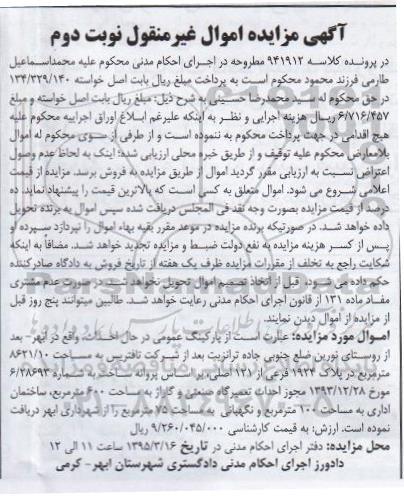 آگهی مزایده اموال غیرمنقول نوبت دوم
در پرونده کلاسه ۹۴۱۹۱۲ مطروحه در اجرای احکام مدنی محکوم علیه محمداسماعیل
طارمی فرزند محمود محکوم است به پرداخت مبلغ ریال بابت اصل خواسته ۱۳۴/۳۲۹/۱۴۰
در حق محکوم له سید محمدرضا حسینی به شرح ذیل: مبلغ ریال بابت اصل خواسته و مبلغ
۶/۷۱۶/۴۵۷ ریال هزینه اجرایی و نظر به اینکه علیرغم ابلاغ اوراق اجراییه محکوم علیه
هیچ اقدامی در جهت پرداخت محکوم به ننموده است و از طرفی از سوی محکوم له اموال
بلامعارض محکوم علیه توقیف و از طریق خبره محلی ارزیابی شده؛ اینک به لحاظ عدم وصول
اعتراض نسبت به ارزیابی مقرر گردید اموال از طریق مزایده به فروش برسد. مزایده از قیمت
اعلامی شروع می شود. اموال متعلق به کسی است که بالاترین قیمت را پیشنهاد نماید. ده
درصد از قیمت مزایده بصورت وجه نقد فی المجلس دریافت شده سپس اموال به برنده تحویل
داده خواهد شد. در صورتیکه برنده مزایده در موعد مقرر بقیه بهاء اموال را نپردازد سپرده او
پس از کسر هزینه مزایده به نفع دولت ضبط و مزایده تجدید خواهد شد. مضافا به اینکه
شکایت راجع به تخلف از مقررات مزایده ظرف یک هفته از تاریخ فروش به دادگاه صادرکننده
حکم داده می شود. قبل از اتخاذ تصمیم اموال تحویل نخواهد شد. در صورت عدم مشتری
مفاد ماده ۱۳۱ از قانون اجرای احکام مدنی رعایت خواهد شد. طالبین میتوانند پنج روز قبل
از مزایده از اموال دیدن نمایند.
اموال مورد مزایده: عبارت است از پارکینگ عمومی در حال احداث، واقع در ابهر- بعد
از روستای نورین ضلع جنوبی جاده ترانزیت بعد از شرکت تافتریس به مساحت ۸۶۲۱/۱۰
مترمربع در پلاک ۱۹۲۴ فرعی از ۱۲۱ اصلی، بر اساس پروانه ساخت به شماره ۶/۲۸۶۹۳
مورخ ۱۳۹۳/۱۲/۲۸ مجوز احداث تعمیرگاه صنعتی و گاراژ به مساحت ۶۰۰ مترمربع، ساختمان
اداری به مساحت ۱۰۰ مترمربع و نگهبانی به مساحت ۷۵ مترمربع را از شهرداری ابهر دریافت
نموده است. ارزش: به قیمت کارشناسی ۹/۲۶۰/۰۴۵/۰۰۰ ریال
محل مزایده: دفتر اجرای احکام مدنی در تاریخ ۱۳۹۵/۳/۱۶ ساعت ۱۱ الی ۱۲
دادورز اجرای احکام مدنی دادگستری شهرستان ابهر- کرمی